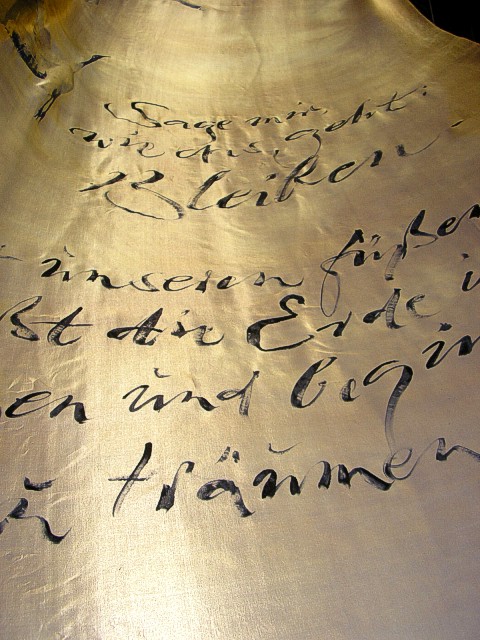 Sage mir,
wie das geht:
Bleiben.
unseren füßen
ßt die Erde i
en und begin
zu träumen